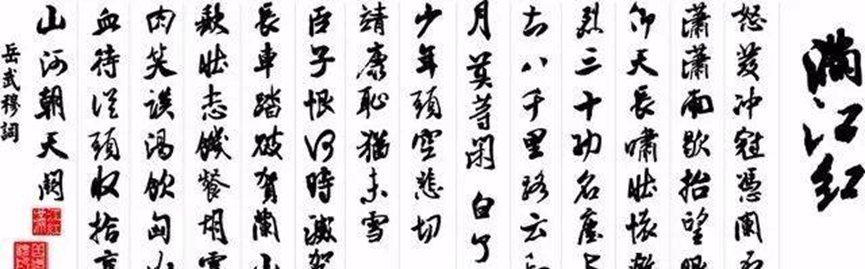 滿江紅
怒髮冲冠憑闌
瀟瀟雨歇抬望眼
仰天長嘯壯懷激
烈三十功名塵与
土八千里路云和
月莫等閑白了
少年頭空悲切
靖康恥猶未雪
臣子恨何時滅駕
長車踏破賀蘭山
缺壯志饑餐胡虜
肉笑談渴飲匈奴
血待從頭收拾舊
山河朝天闕
岳武穆詞